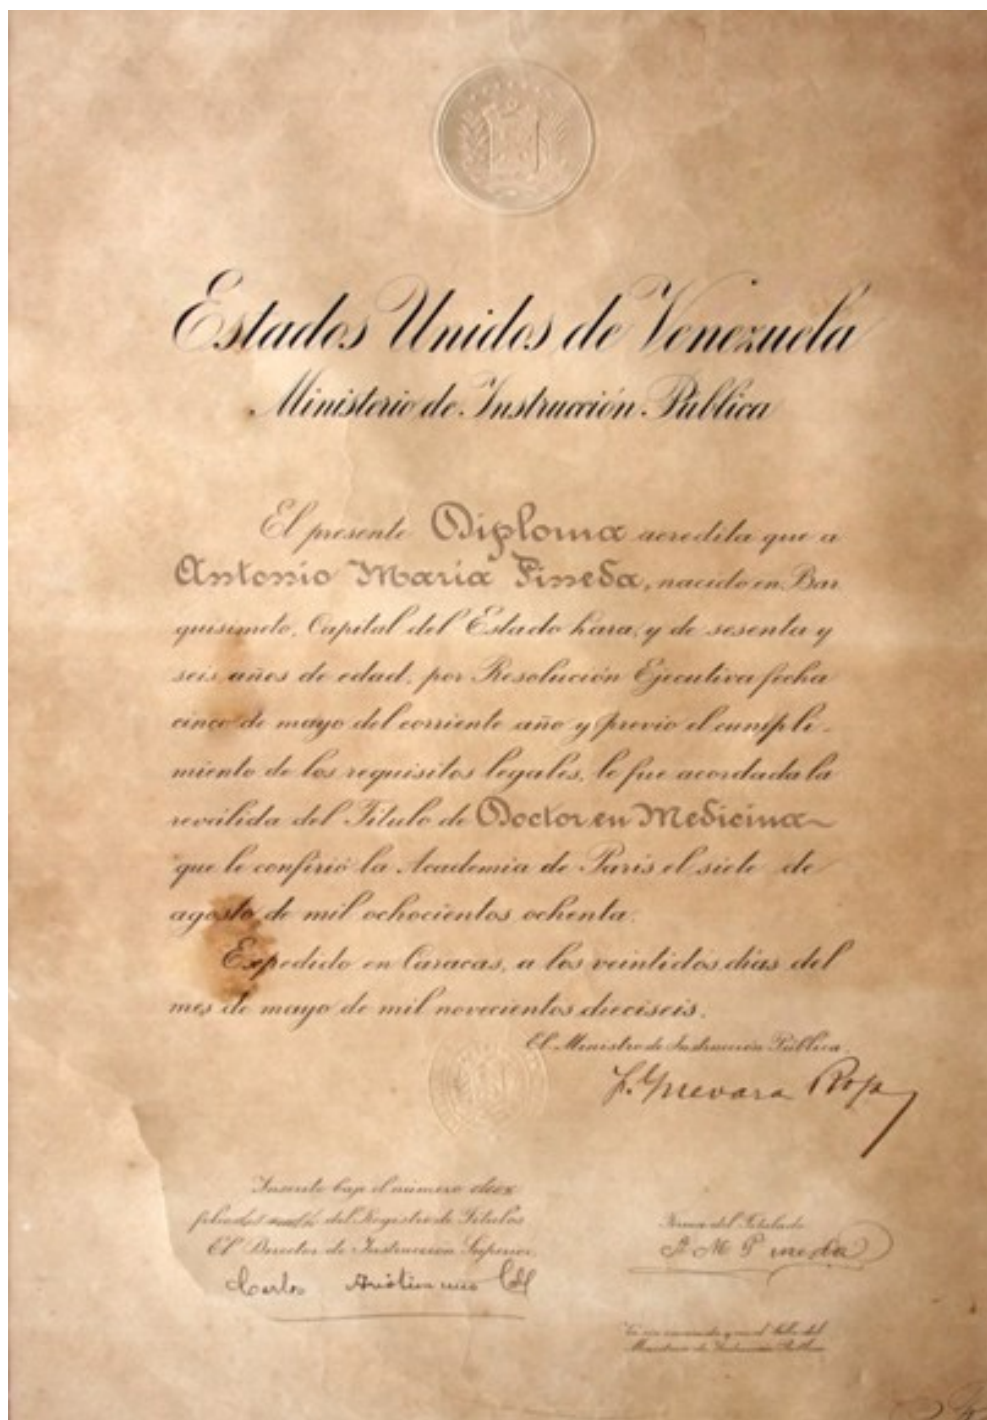 Estados Unidos de Venezuela
Ministerio de Instrucción Pública
El presente Diploma acredita que a
Antonio María Pineda, nacido en Bar
quisimeto, Capital del Estado Lara, y de sesenta y
seis años de edad, por Resolución Ejecutiva fecha
cinco de mayo del corriente año y previo el cumpli-
miento de los requisitos legales, le fue acordada la
reválida del Título de Doctor en Medicina
que le confirió la Academia de Paris el siete de
agosto de mil ochocientos ochenta.
Expedido en Caracas, a los veintidos días del
mes de mayo de mil novecientos dieciseis.
El Ministro de Instrucción Pública,
F. Guevara Rojas
Inscrito bajo el número doce
folio del Registro de Títulos
El Director de Instrucción Superior,
Carlos
Firma del Titulado
A M Pineda
Ministerio de Instrucción Pública